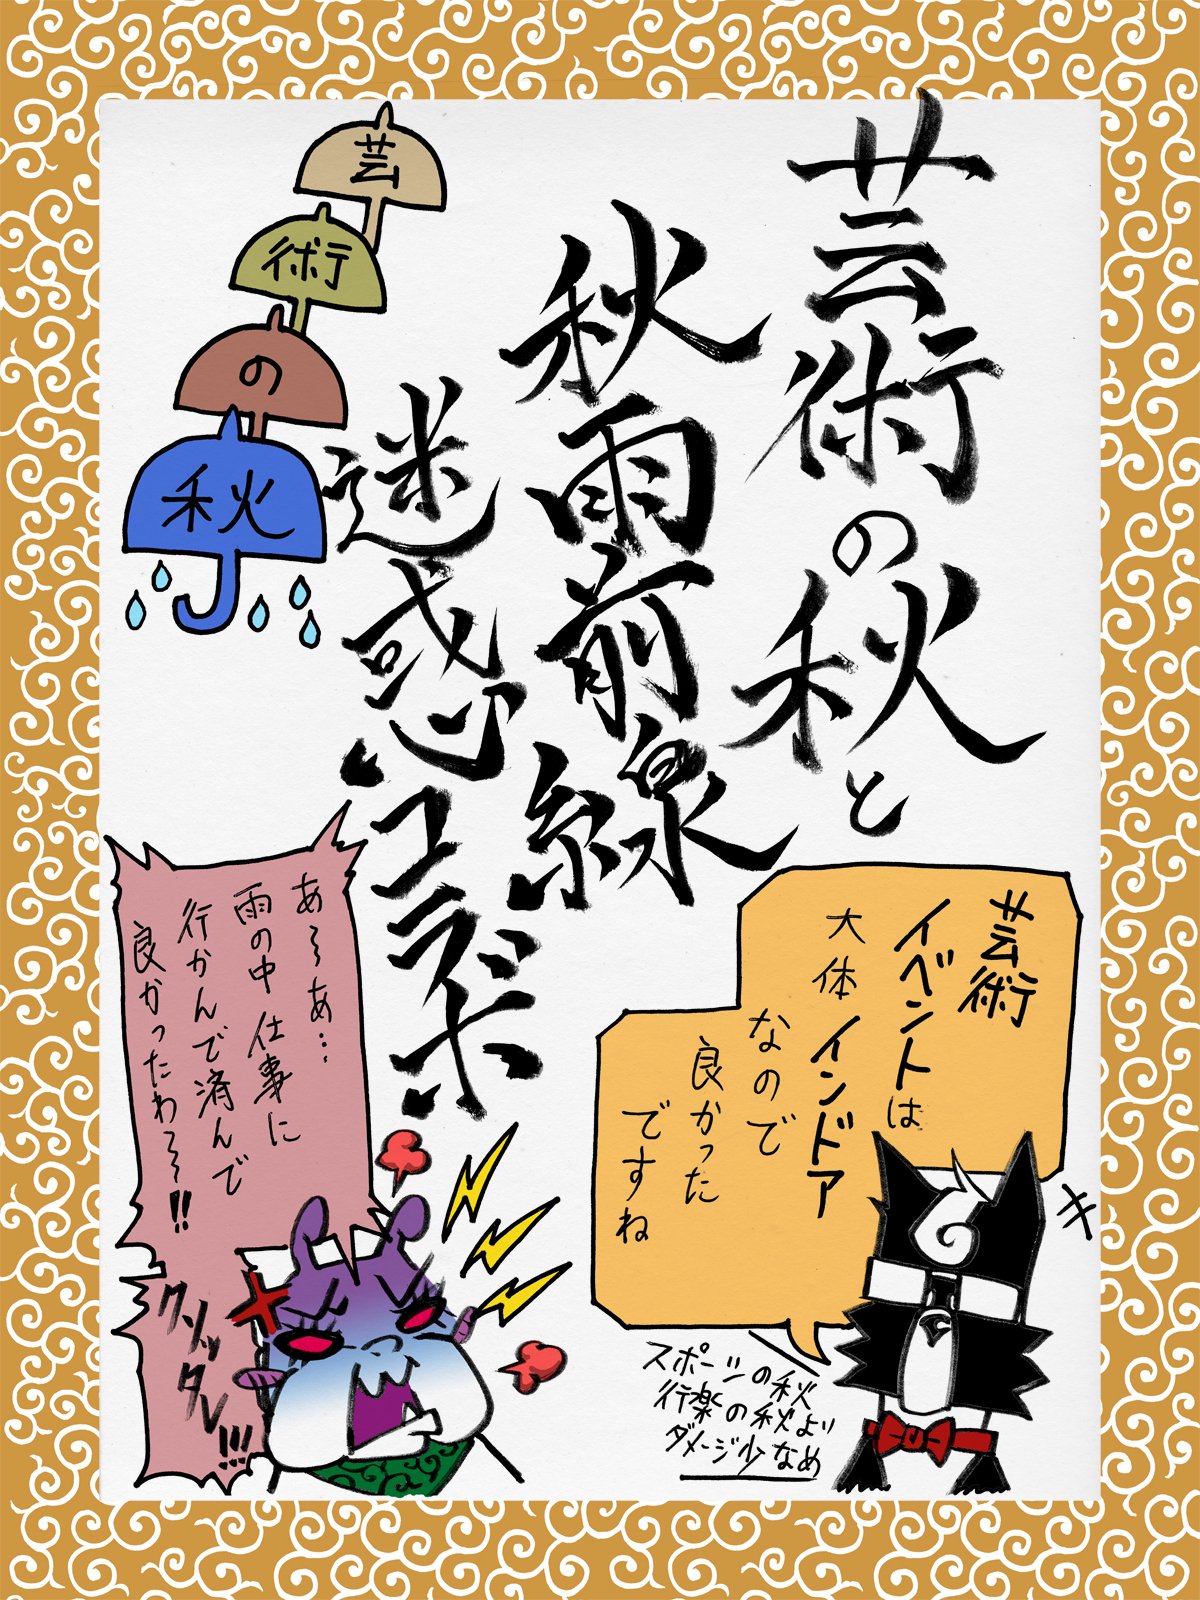 芸術の秋と
秋雨前線
迷惑コラボ
芸
術
の
秋
芸術
イベントは
大体インドア
なので
良かった
ですね
スポーツの秋
行楽の秋より
ダメージ少なめ
あ〜あ…
雨の中仕事に
行かんで済んで
良かったわ〜〜!!
クソッタレ!!!